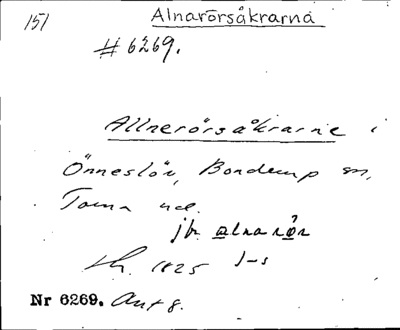 151
Alnarörsåkrarna
# 6269.
Allnerörsåkrarne i
Önneslöv, Bonderup sn,
Torna hd.
jfr alnarör
1825 1-s
Nr 6269. Ant 8.